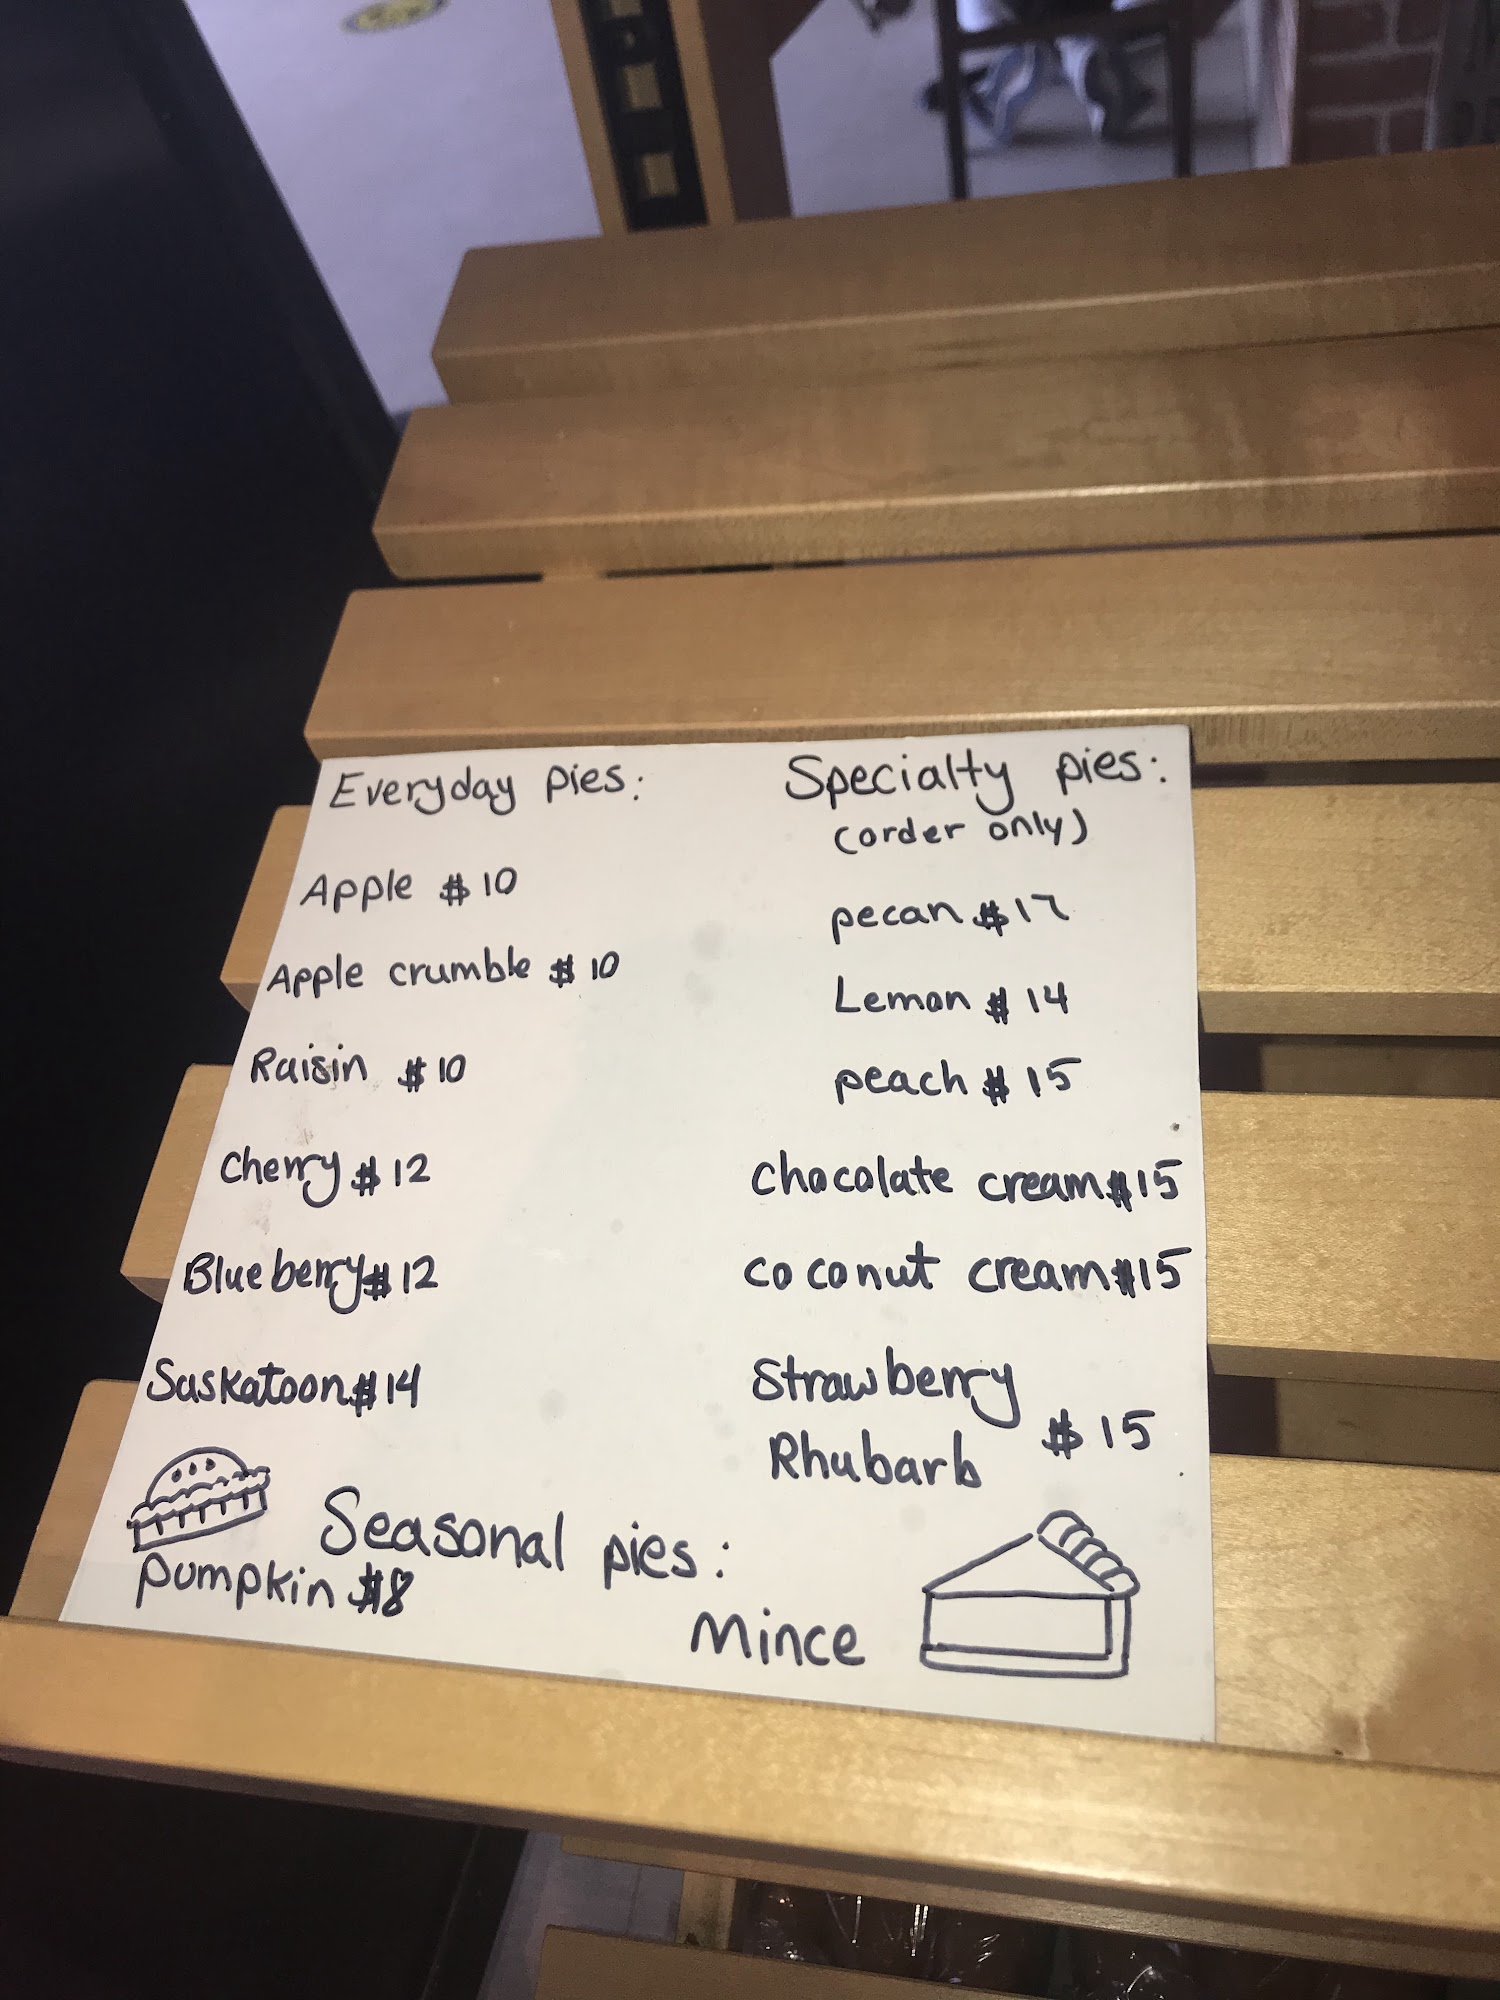 Everyday pies:
Apple $10
Apple crumble $10
Raisin $10
Cherry $12
Blueberry $12
Saskatoon $14
pumpkin $8
Specialty pies:
(order only)
pecan $17
Lemon $14
peach $15
chocolate cream $15
coconut cream $15
Strawberry
Rhubarb $15
Seasonal pies:
Mince